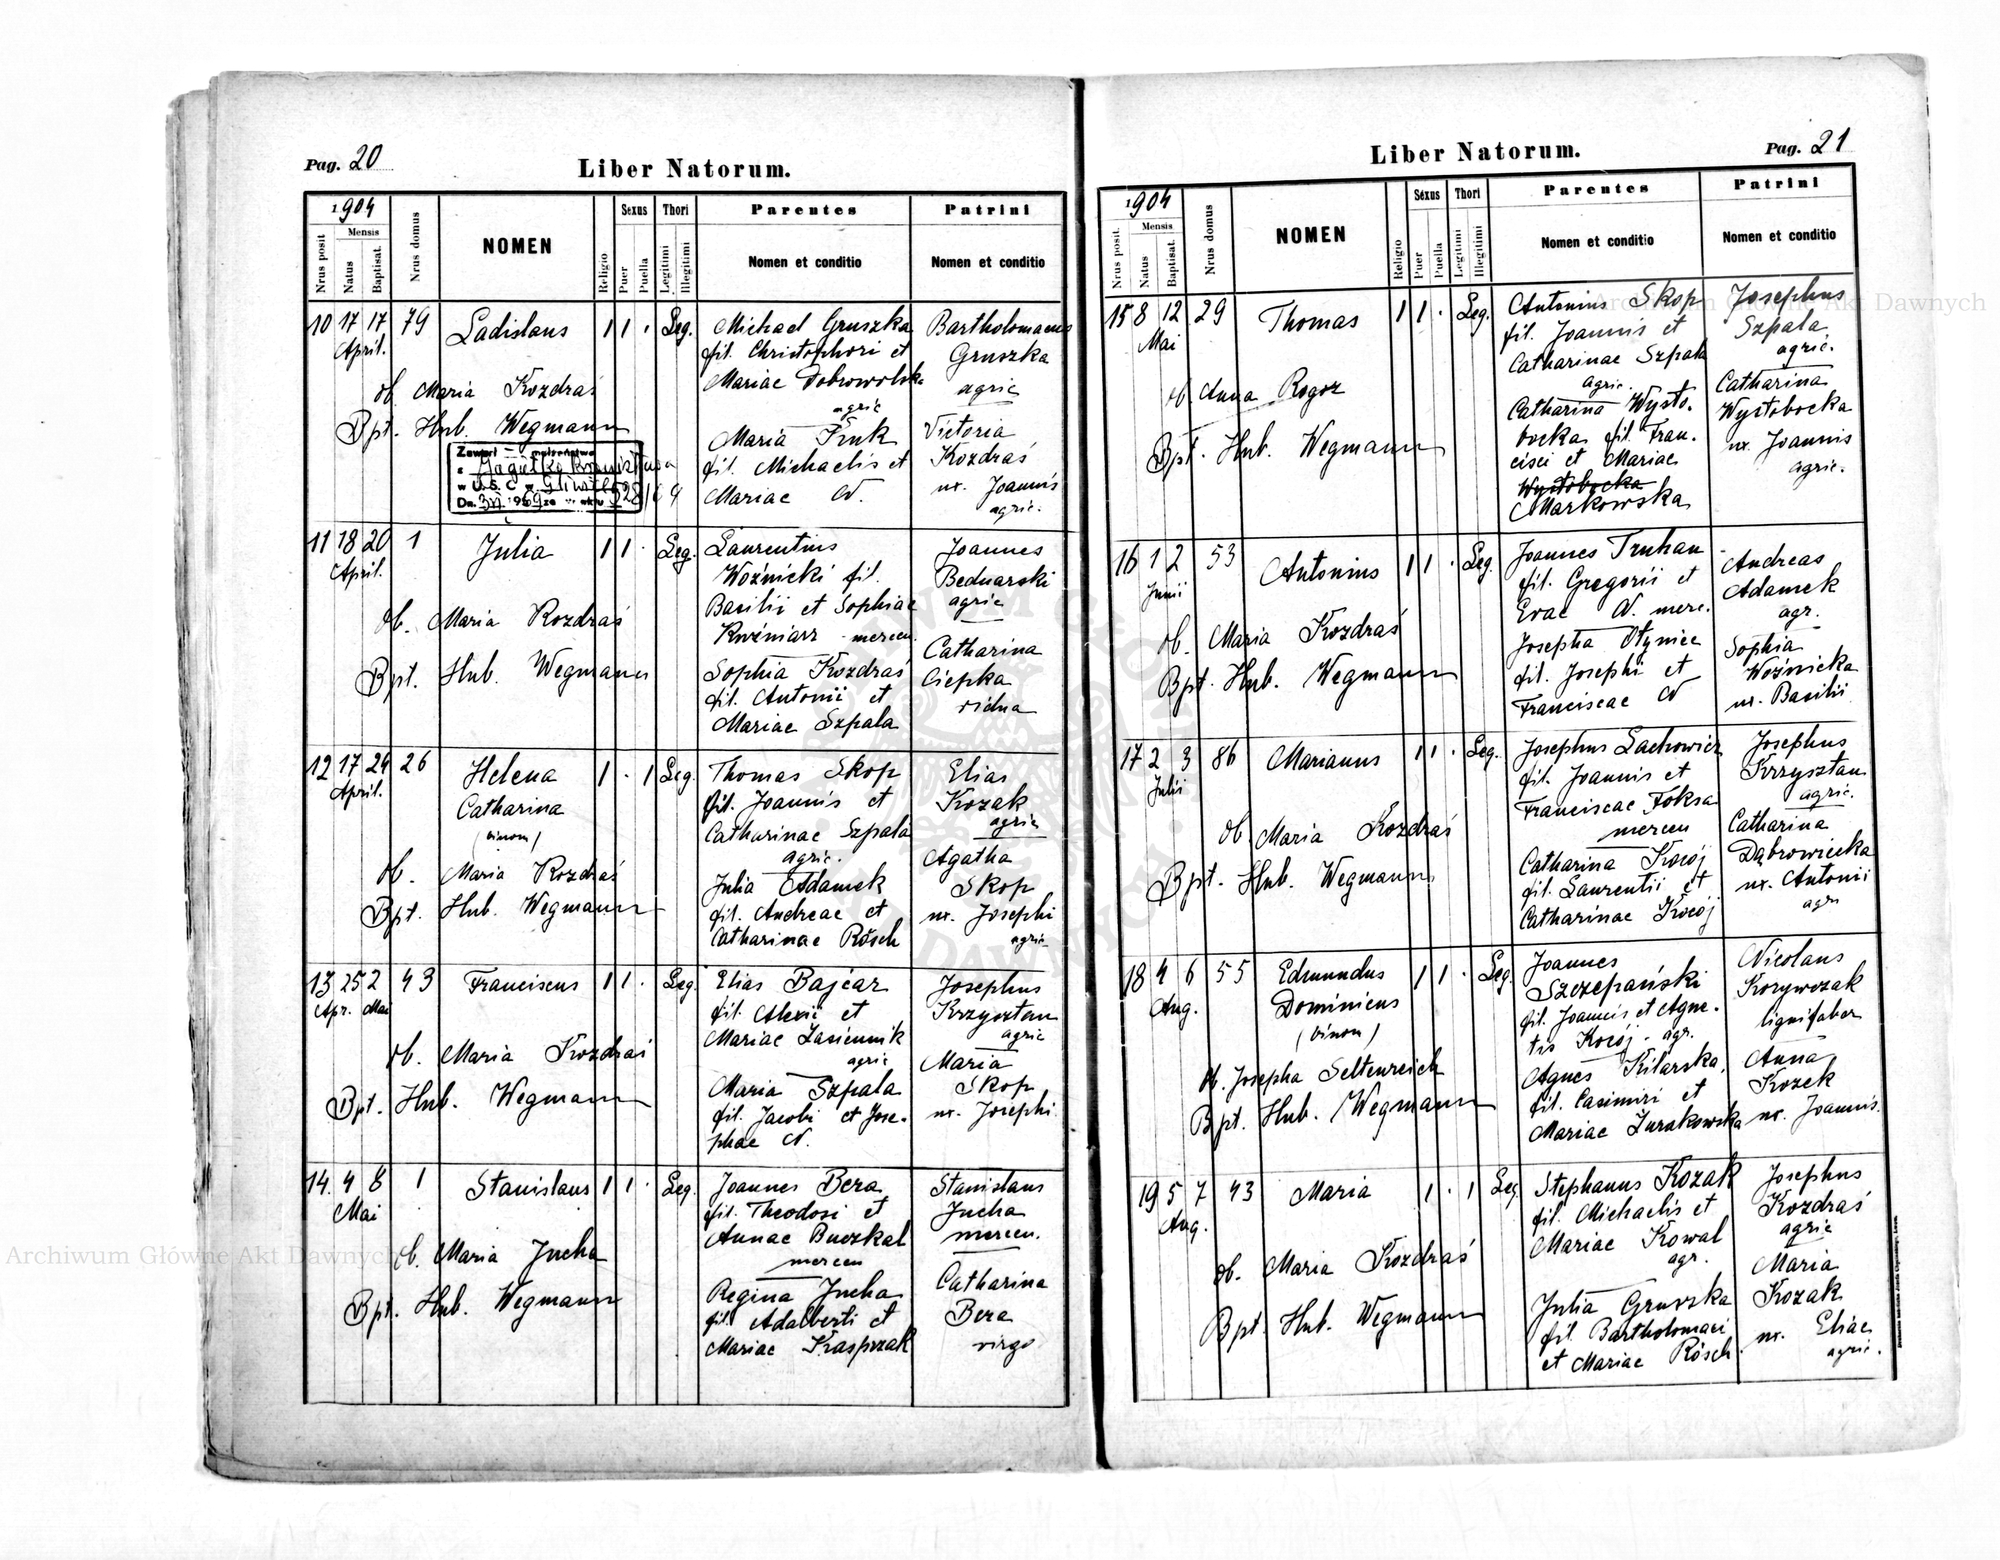 Pag. 20
Liber Natorum.
1904
Nrus posit
Mensis
Natus
Baptisat.
Nrus domus
NOMEN
Religio
Sexus
Puer
Puella
Thori
Legitimi
Illegitimi
Parentes
Nomen et conditio
Patrini
Nomen et conditio
10 17 17 79 Ladislaus 1 1 · Leg. Michael Gruszka Bartholomaeus
April. fil. Christophori et Gruszka
ob Maria Kozdraś Mariae Dobrowolska agric
agric
Bpt. Hub. Wegmann Maria Fruk Victoria
fil. Michaelis et Kozdraś
Mariae N. ux. Joannis
agric.
Zawarł małżeństwo
w U.S.C. w
11 18 20 1 Julia 1 1 · Leg. Laurentius Joannes
April. Woźnicki fil. Bednarski
Basilii et Sophiae agric
ob. Maria Kozdraś Kuźniarz mercen. Catharina
Bpt. Hub. Wegmann Sophia Kozdraś Ciepka
fil. Antonii et vidua
Mariae Szpala
12 17 24 26 Helena 1 · 1 Leg. Thomas Skop Elias
April. Catharina fil. Joannis et Kozak
(binom) Catharinae Szpala agric
agric. Agatha
ob. Maria Kozdraś Julia Adamek Skop
Bpt. Hub. Wegmann fil. Andreae et ux. Josephi
Catharinae Rösch agric
13 25 2 43 Franciscus 1 1 · Leg. Elias Bajcar Josephus
Apr. Mai fil. Alexii et Krzysztan
Mariae Lasiewnik agric
agric
ob. Maria Kozdraś Maria Szpala Maria
Bpt. Hub. Wegmann fil. Jacobi et Jose- Skop
phae N. ux. Josephi
14. 4 8 1 Stanislaus 1 1 · Leg. Joannes Bera Stanislaus
Mai fil. Theodosi et Jucha
Annae Buczkal mercen.
ob. Maria Jucha mercen Catharina
Bpt. Hub. Wegmann Regina Jucha Bera
fil. Adalberti et virgo
Mariae Kasprzak
Pag. 21
Liber Natorum.
1904
Nrus posit.
Mensis
Natus
Baptisat.
Nrus domus
NOMEN
Religio
Sexus
Puer
Puella
Thori
Legitimi
Illegitimi
Parentes
Nomen et conditio
Patrini
Nomen et conditio
15 8 12 29 Thomas 1 1 · Leg. Antonius Skop Josephus
Mai fil. Joannis et Szpala
Catharinae Szpak agric.
agric. Catharina
ob. Anna Rogoz Catharina Wysło- Wysłobocka
Bpt. Hub. Wegmann bocka fil. Fran- ux Joannis
cisci et Mariae agric.
Wysłobocka
Markowska
16 1 2 53 Antonius 1 1 · Leg. Joannes Truhan Andreas
Junii fil. Gregorii et Adamek
Evae N. merc. agr.
ob. Maria Kozdraś Josepha Ołyniec Sophia
Bpt. Hub. Wegmann fil. Josephi et Woźnicka
Franciscae N ux. Basilii
17 2 3 86 Marianus 1 1 · Leg. Josephus Lachowicz Josephus
Julii fil. Joannis et Krzysztan
Franciscae Foksa agric.
ob. Maria Kozdraś mercen Catharina
Bpt. Hub. Wegmann Catharina Kocój Dąbrowiecka
fil. Laurentii et ux. Antonii
Catharinae Kocój agr
18 4 6 55 Edmundus 1 1 · Leg. Joannes Nicolaus
Aug. Dominicus Szczepański Korywczak
(binom) fil. Joannis et Agne- lignifaber
tis Kocój · agr. Anna
ob. Josepha Seltenreich Agnes Kilarska Kozek
Bpt. Hub. Wegmann fil. Casimiri et ux. Joannis.
Mariae Żurakowska
19 5 7 43 Maria 1 · 1 Leg Stephanus Kozak Josephus
Aug. fil. Michaelis et Kozdraś
Mariae Kowal agric
ob. Maria Kozdraś agr. Maria
Bpt. Hub. Wegmann Julia Gruszka Kozak
fil. Bartholomaei ux. Eliae
et Mariae Rösch. agric.
Archiwum Główne Akt Dawnych
Archiwum Główne Akt Dawnych